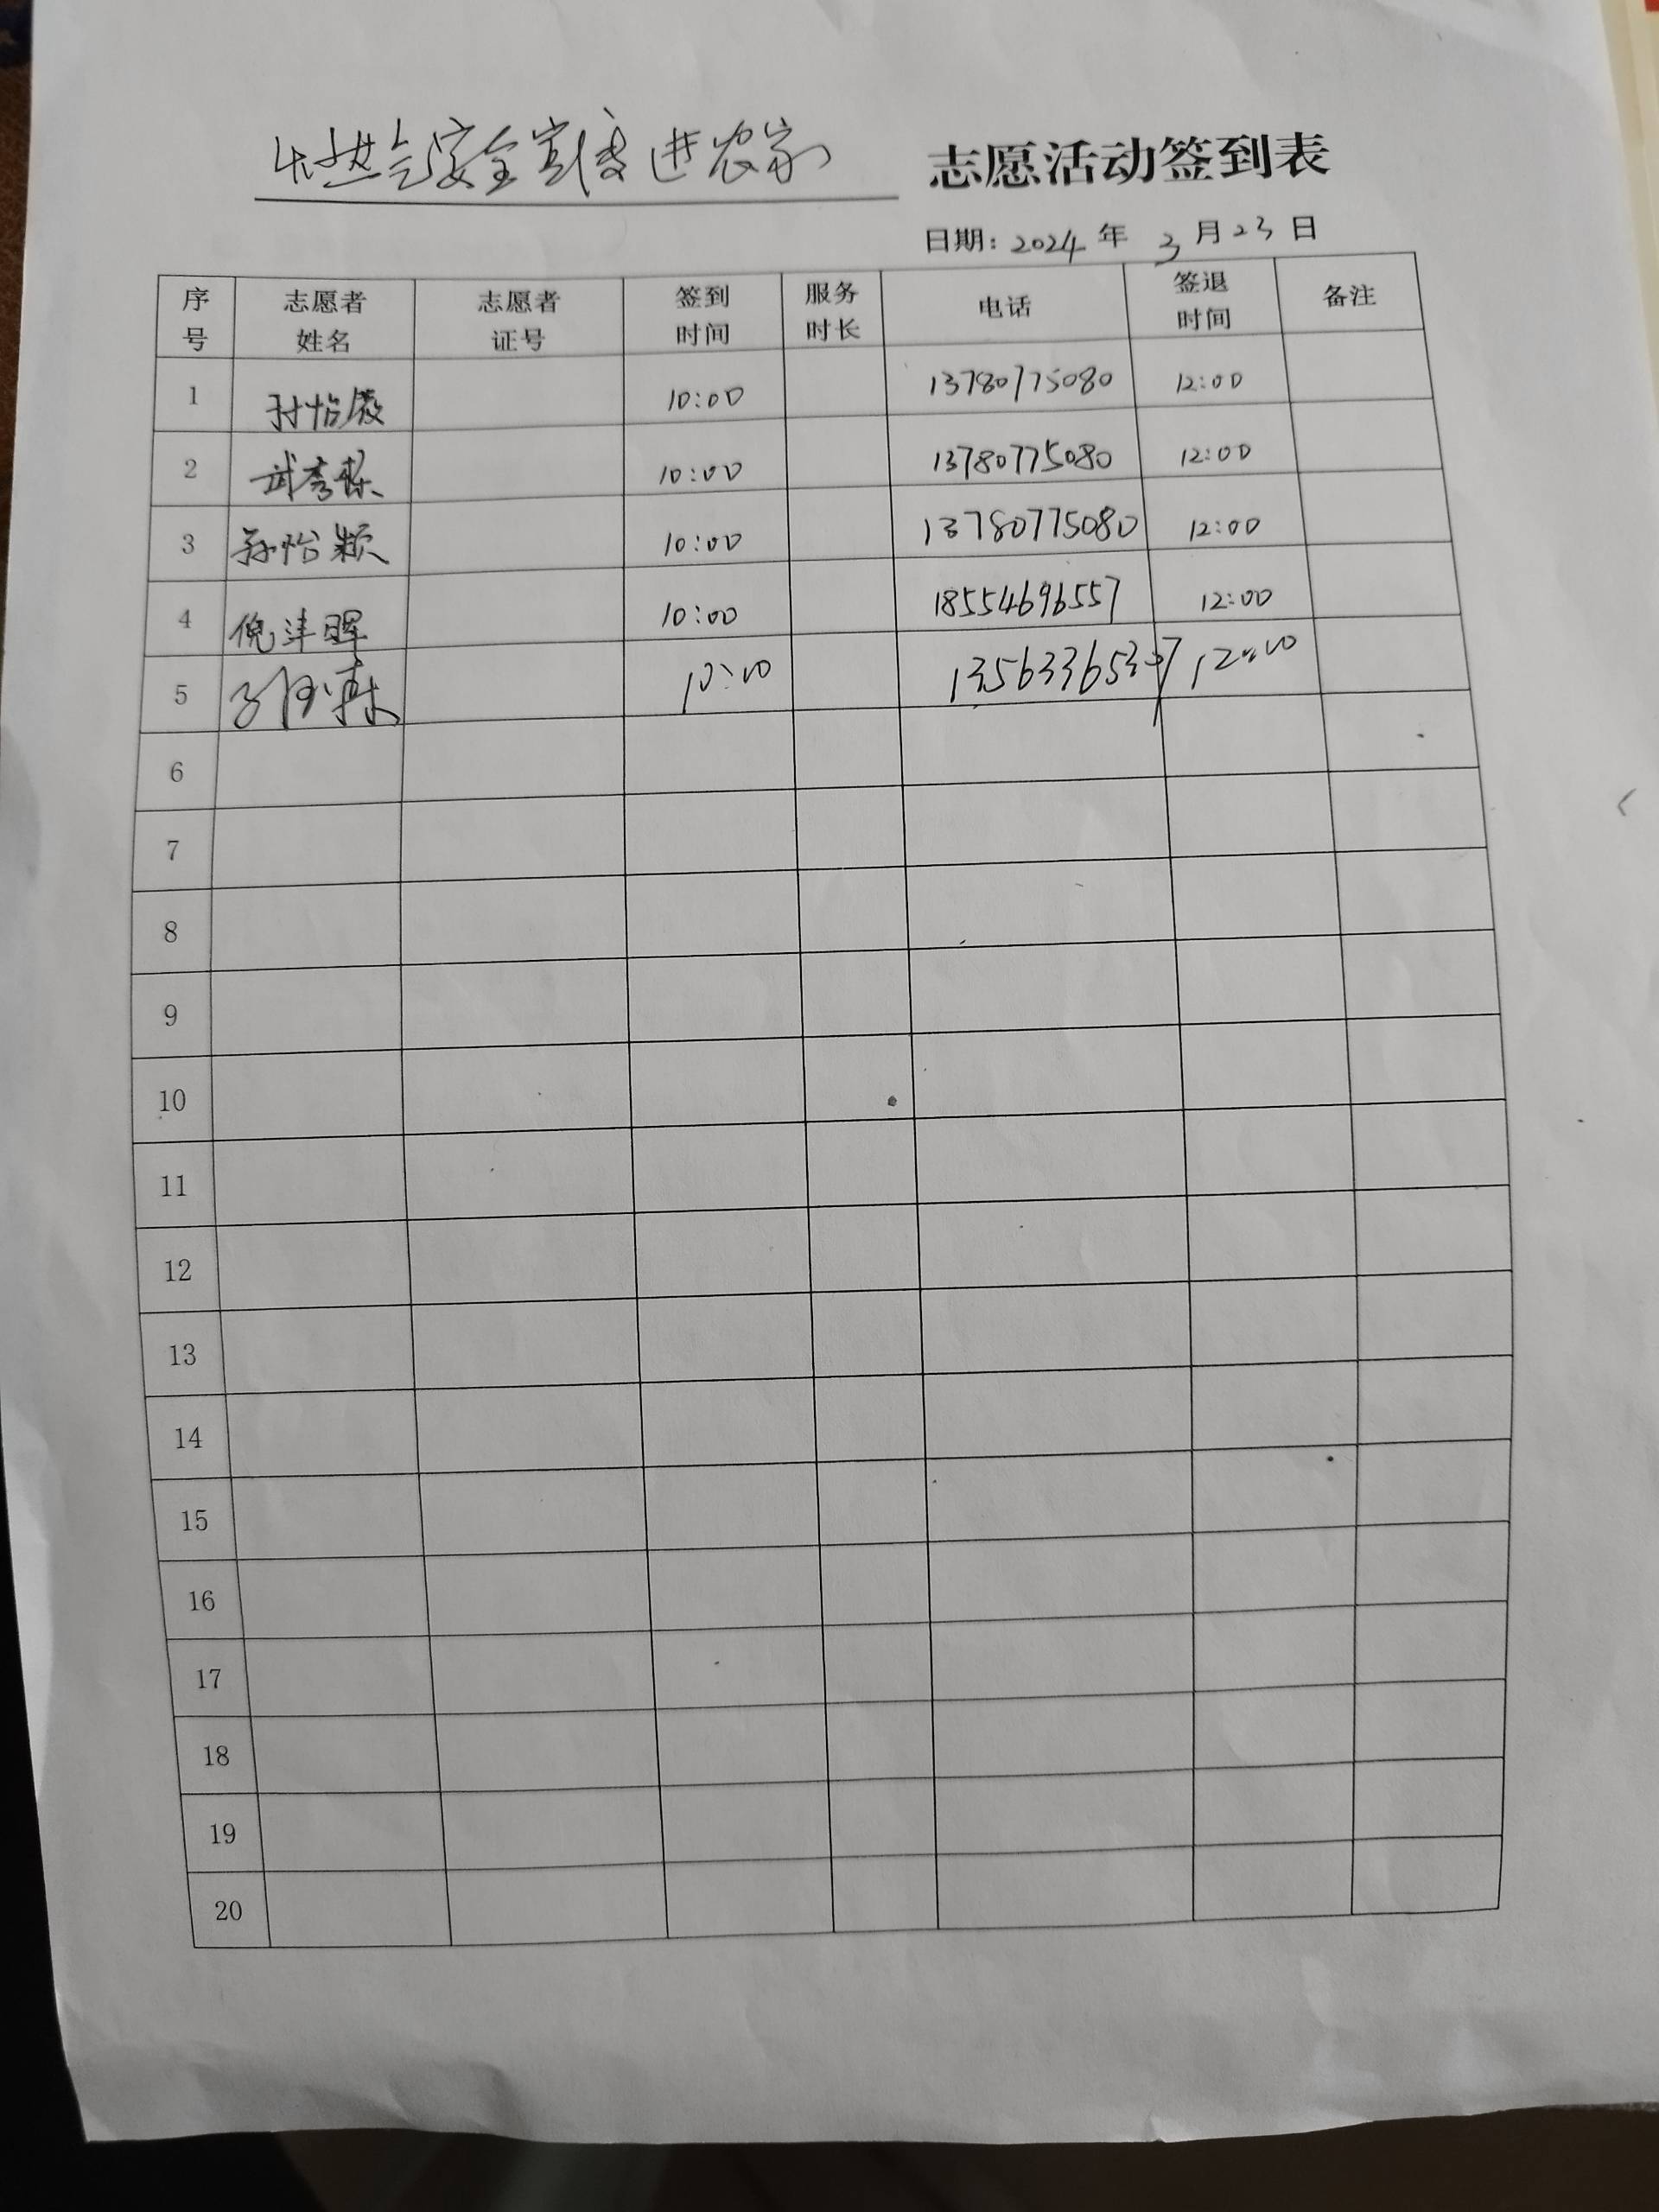 燃气安全宣传进农家 志愿活动签到表
日期: 2024 年 3 月 23 日
序号 志愿者姓名 志愿者证号 签到时间 服务时长 电话 签退时间 备注
1 孙怡 10:00 13780775080 12:00
2 武秀 10:00 13780775080 12:00
3 孙怡颖 10:00 13780775080 12:00
4 倪沣晖 10:00 18554696557 12:00
5 10:00 12:00
6
7
8
9
10
11
12
13
14
15
16
17
18
19
20